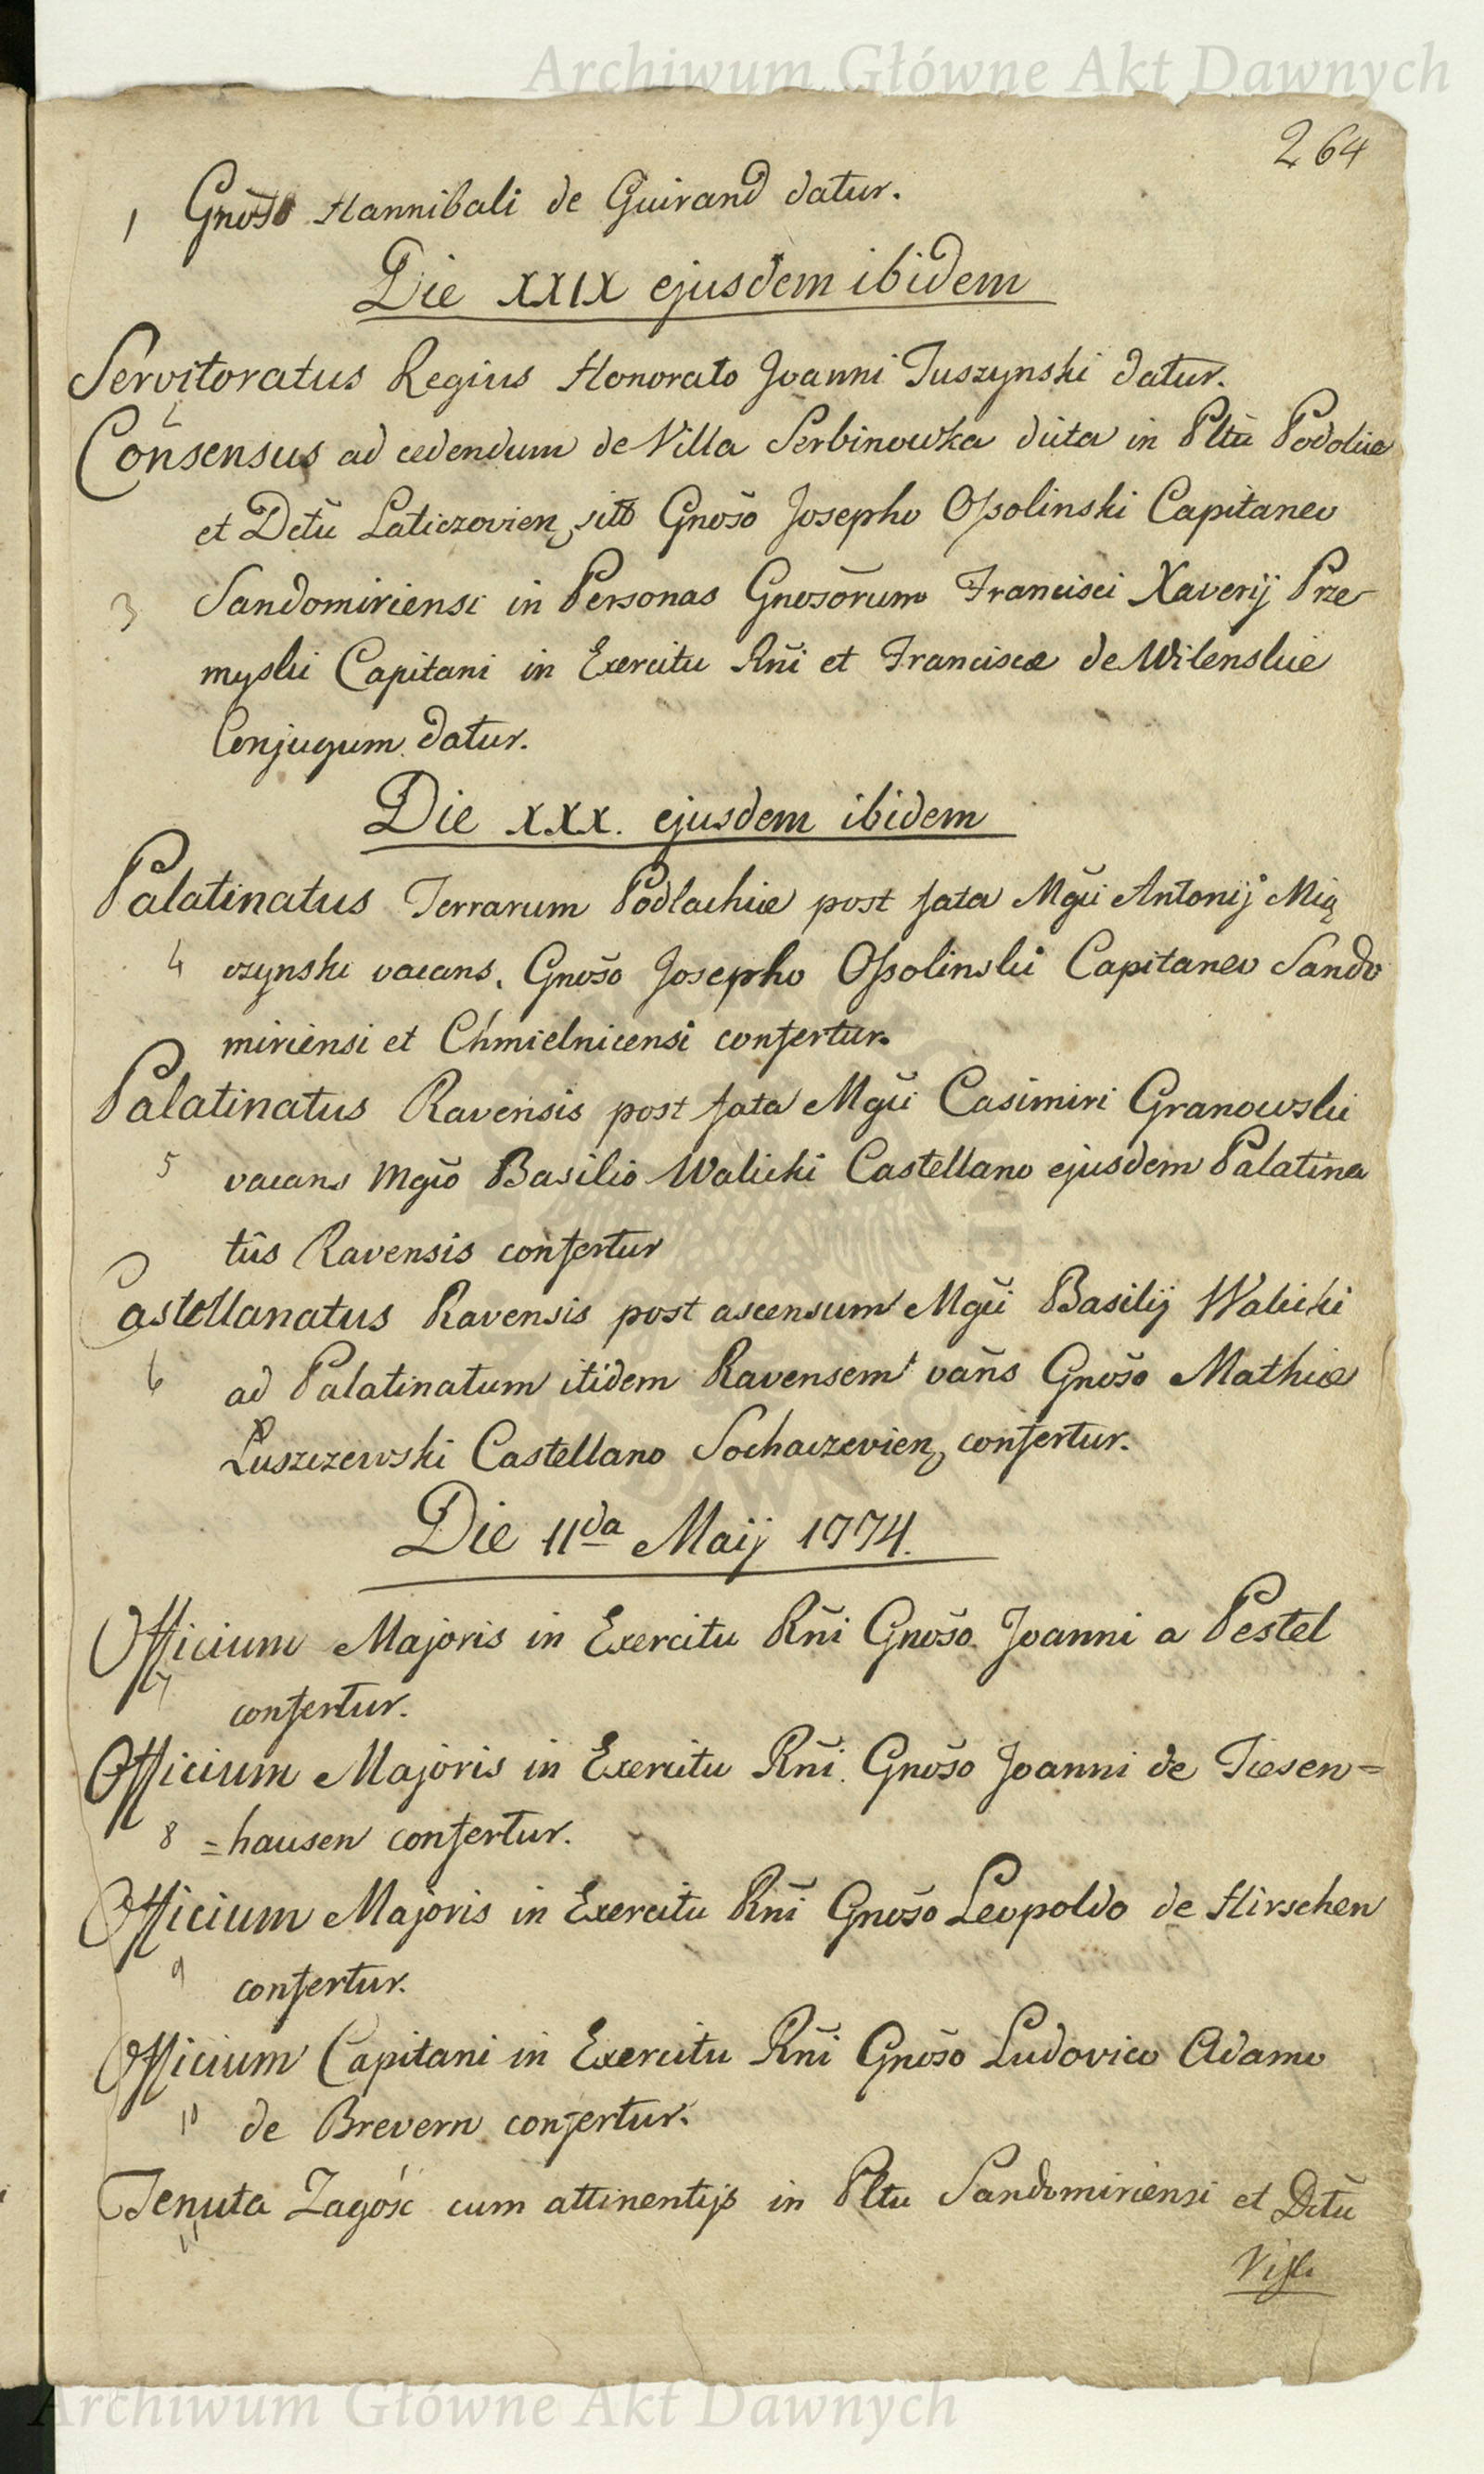 Archiwum Główne Akt Dawnych
264
1 Gnoso Hannibali de Guirand datur.
Die XXIX ejusdem ibidem
Servitoratus Regius Honorato Joanni Tuszynski datur.
2
Consensus ad cedendum de Villa Serbinowka dicta in Pltu Podoliæ
et Dctu Laticzovien sito Gnoso Josepho Ossolinski Capitaneo
3 Sandomiriensi in Personas Gnosorum Francisci Xaverij Prze-
myski Capitani in Exercitu Rni et Franciscæ de Wilenskie
Conjugum datur.
Die XXX. ejusdem ibidem
Palatinatus Terrarum Podlachiæ post fata Mgci Antonij Mią
4 czynski vacans, Gnoso Josepho Ossolinski Capitaneo Sando
miriensi et Chmielnicensi confertur.
Palatinatus Ravensis post fata Mgci Casimiri Granowski
5 vacans Mgco Basilio Walicki Castellano ejusdem Palatina
tûs Ravensis confertur
Castellanatus Ravensis post ascensum Mgci Basilij Walicki
6 ad Palatinatum itidem Ravensem vañs Gnoso Mathiæ
Luszczewski Castellano Sochaczevien confertur.
Die 11da Maij 1774.
Officium Majoris in Exercitu Rñi Gnoso Joanni a Pestel
7 confertur.
Officium Majoris in Exercitu Rñi Gnoso Joanni de Tiesen=
8 =hausen confertur.
Officium Majoris in Exercitu Rñi Gnoso Leopoldo de Hirschen
9 confertur.
Officium Capitani in Exercitu Rñi Gnoso Ludovico Adamo
10 de Brevern confertur.
Tenuta Zagość cum attinentijs in Pltu Sandomiriensi et Dctu
11
Visli
Archiwum Główne Akt Dawnych